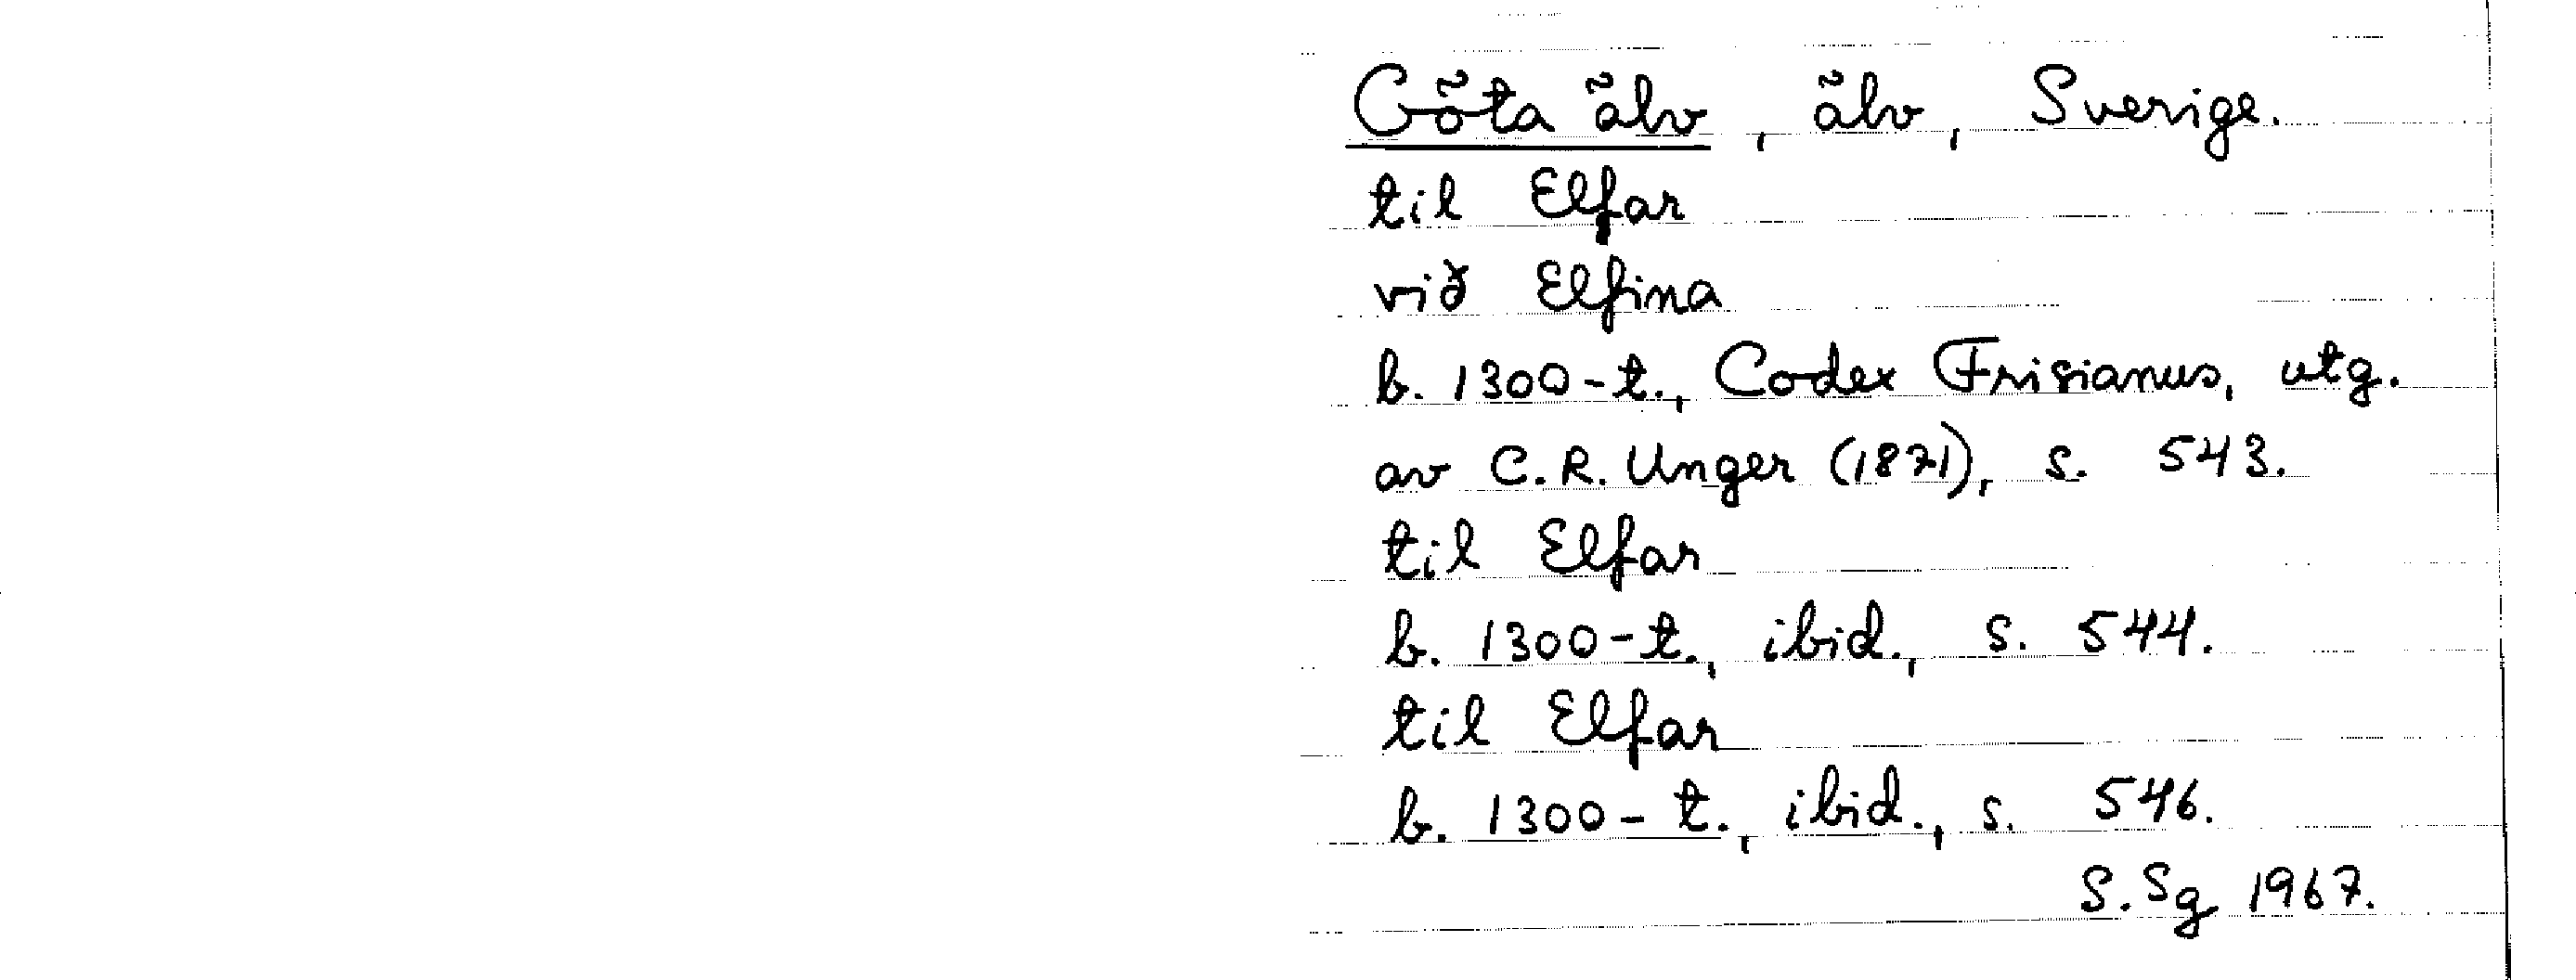 Göta älv, älv, Sverige.
til Elfar
við Elfina
b. 1300-t., Codex Frisianus, utg.
av C.R. Unger (1871), s. 543.
til Elfar
b. 1300-t., ibid., s. 544.
til Elfar
b. 1300-t., ibid., s. 546.
S. Sg 1967.